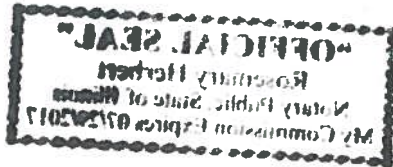 "OFFICIAL SEAL"
Rosemary Herbert
Notary Public, State of Illinois
My Commission Expires 07/29/2017